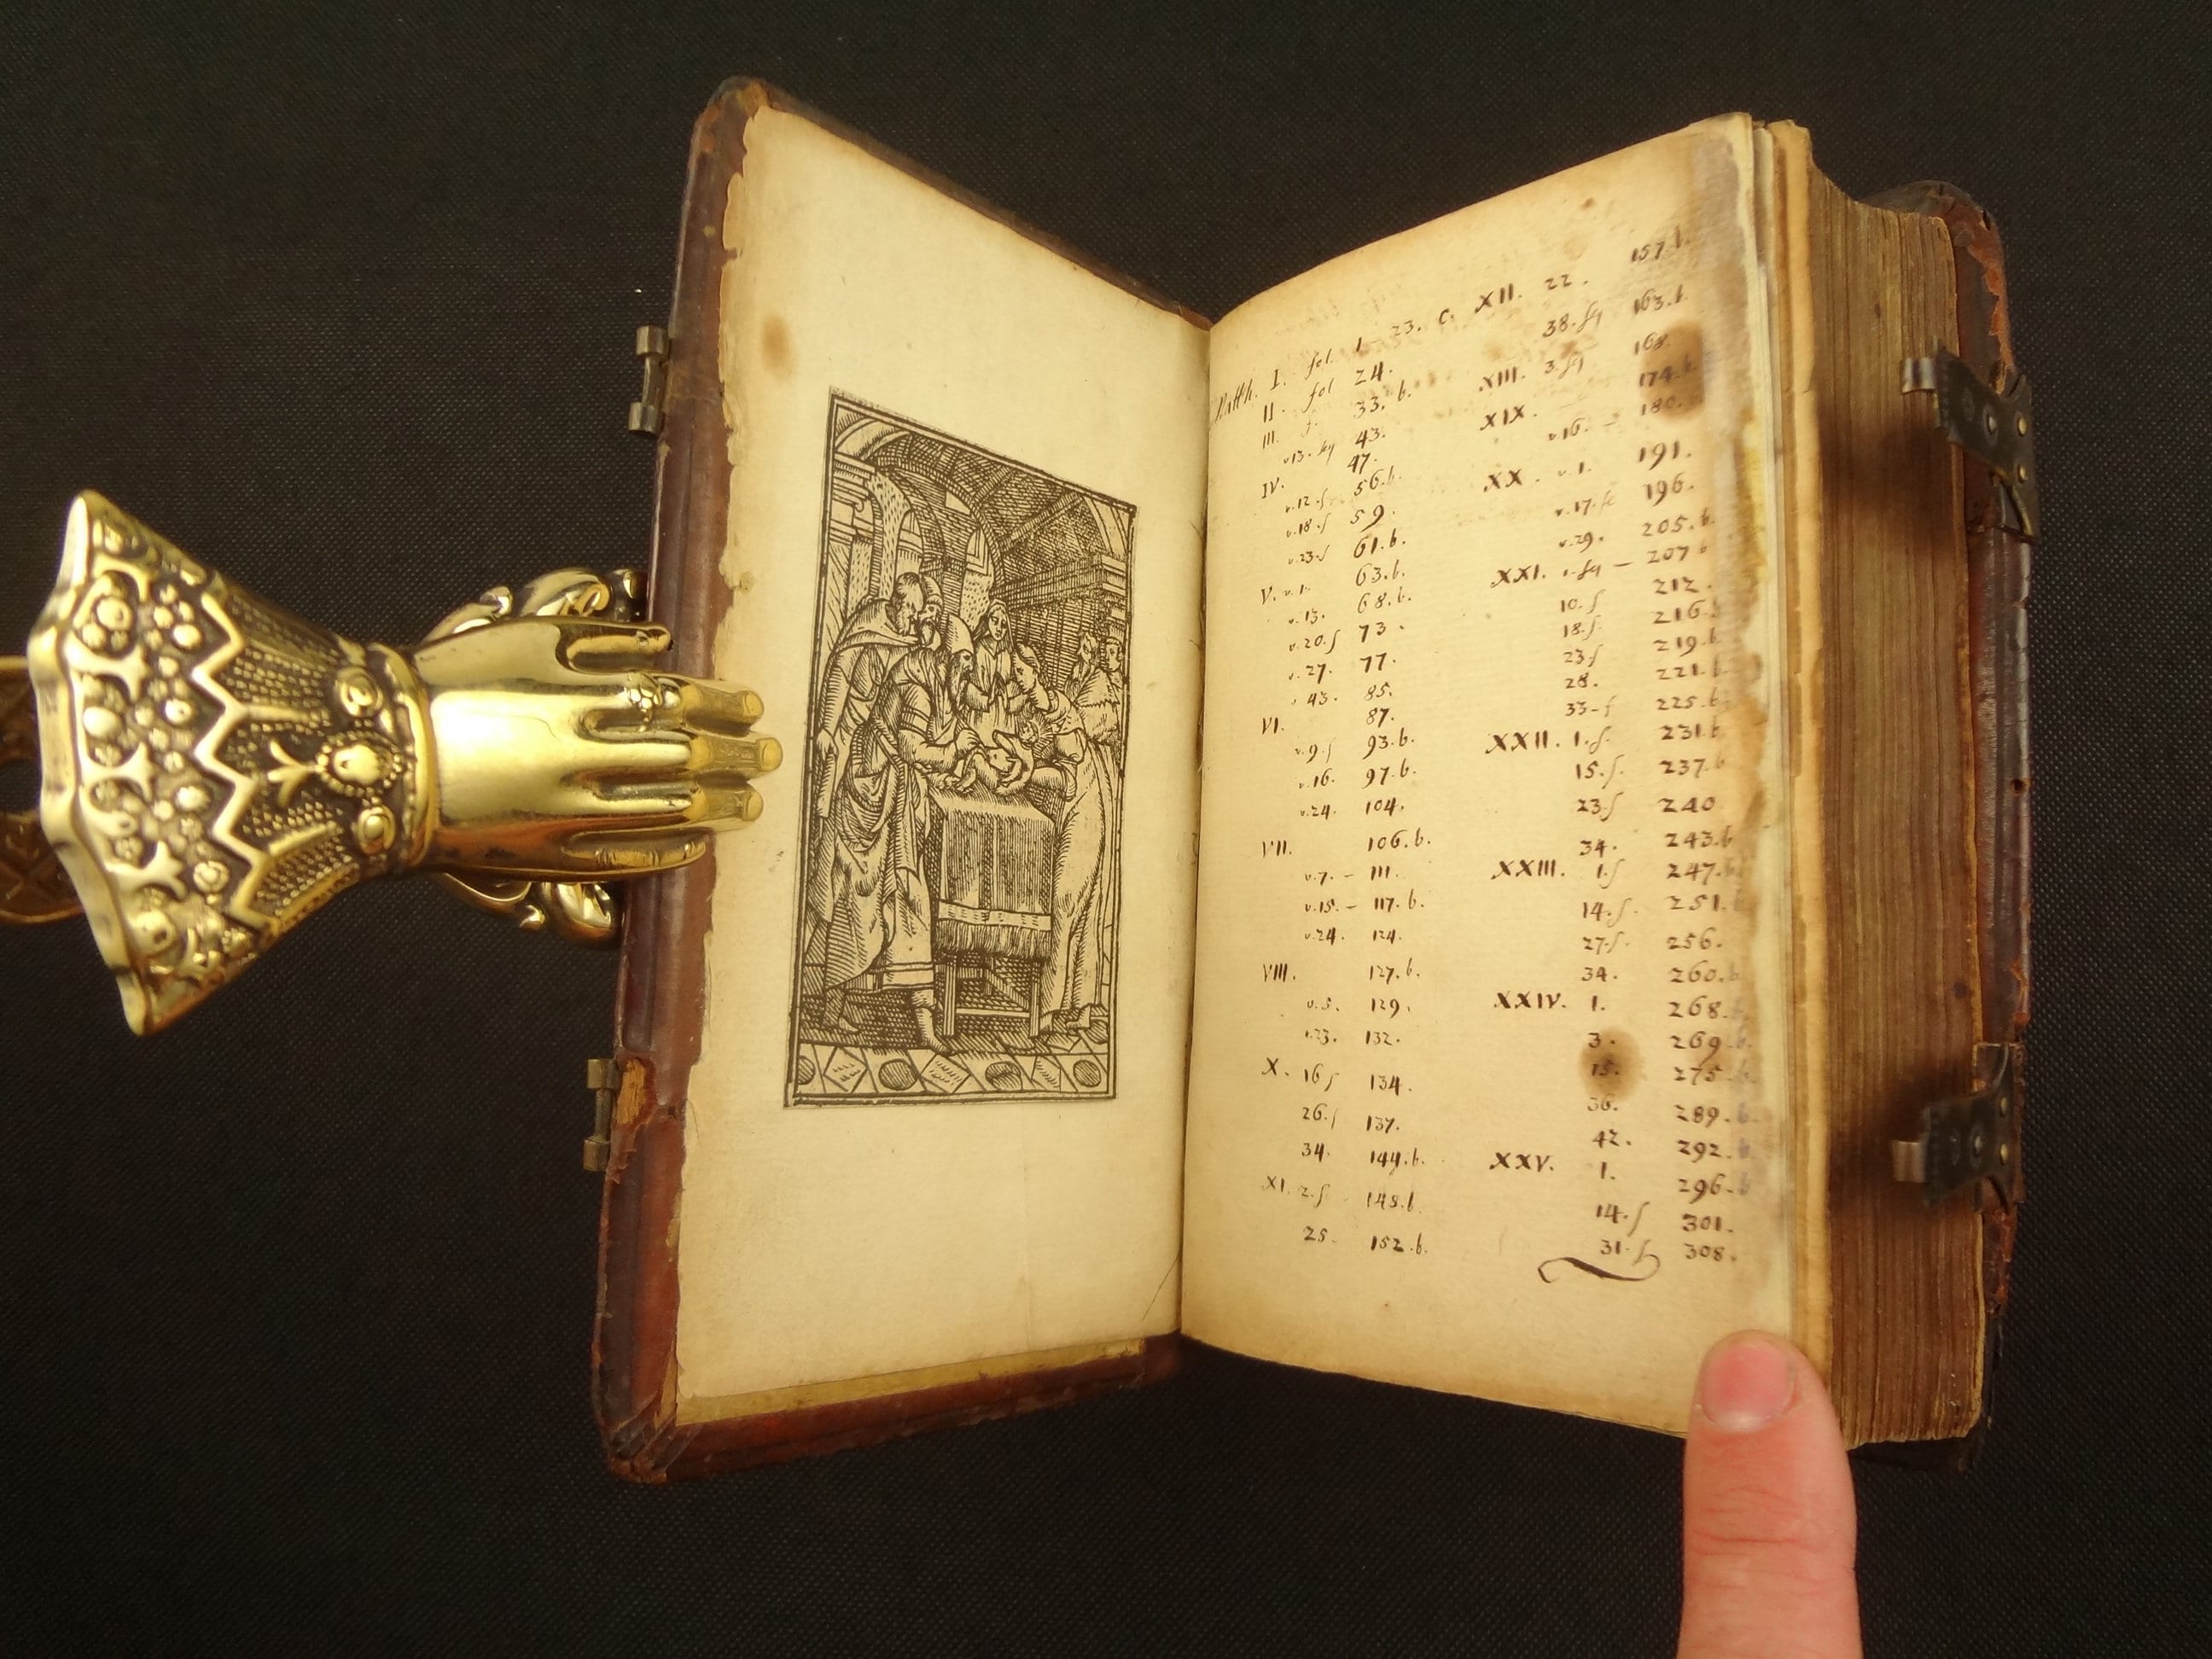 Matth. I. fol. 1
II. fol 24.
III. f. 33. b.
v13. sq 43.
IV. 47.
v.12.f 56.b.
v.18.f 59.
v.23.f 61.b.
V. v.1. 63.b.
v.13. 68.b.
v.20.f 73.
v.27. 77.
v 43. 85.
VI. 87.
v.9.f 93.b.
v.16. 97.b.
v.24. 104.
VII. 106.b.
v.7. - 111.
v.15. - 117.b.
v.24. 124.
VIII. 127.b.
v.5. 129.
v.23. 132.
X. 16f 134.
26.f 137.
34. 144.b.
XI. 2.f - 148.b
25- 152.b.
23. C. XII. 22. 157.b.
38.sq 163.b.
XIII. 3.sq 168.
XIX. 174.b
v16. - 180.
XX. v.1. 191.
v.17.f 196.
v.29. 205.b.
XXI. 1.sq - 207 b
10.f 212.
18.f. 216.b
23f 219.b
28. 221.b
33-f 225.b
XXII. 1.f. 231.b
15.f. 237.b
23.f 240
34. 243.b
XXIII. 1.f 247.b
14.f. 251.b
27.f. 256.
34. 260.b
XXIV. 1. 268.b
3. 269.b
15. 275.b
36. 289.b.
42. 292.b
XXV. 1. 296.b
14.f 301.
31.f 308.